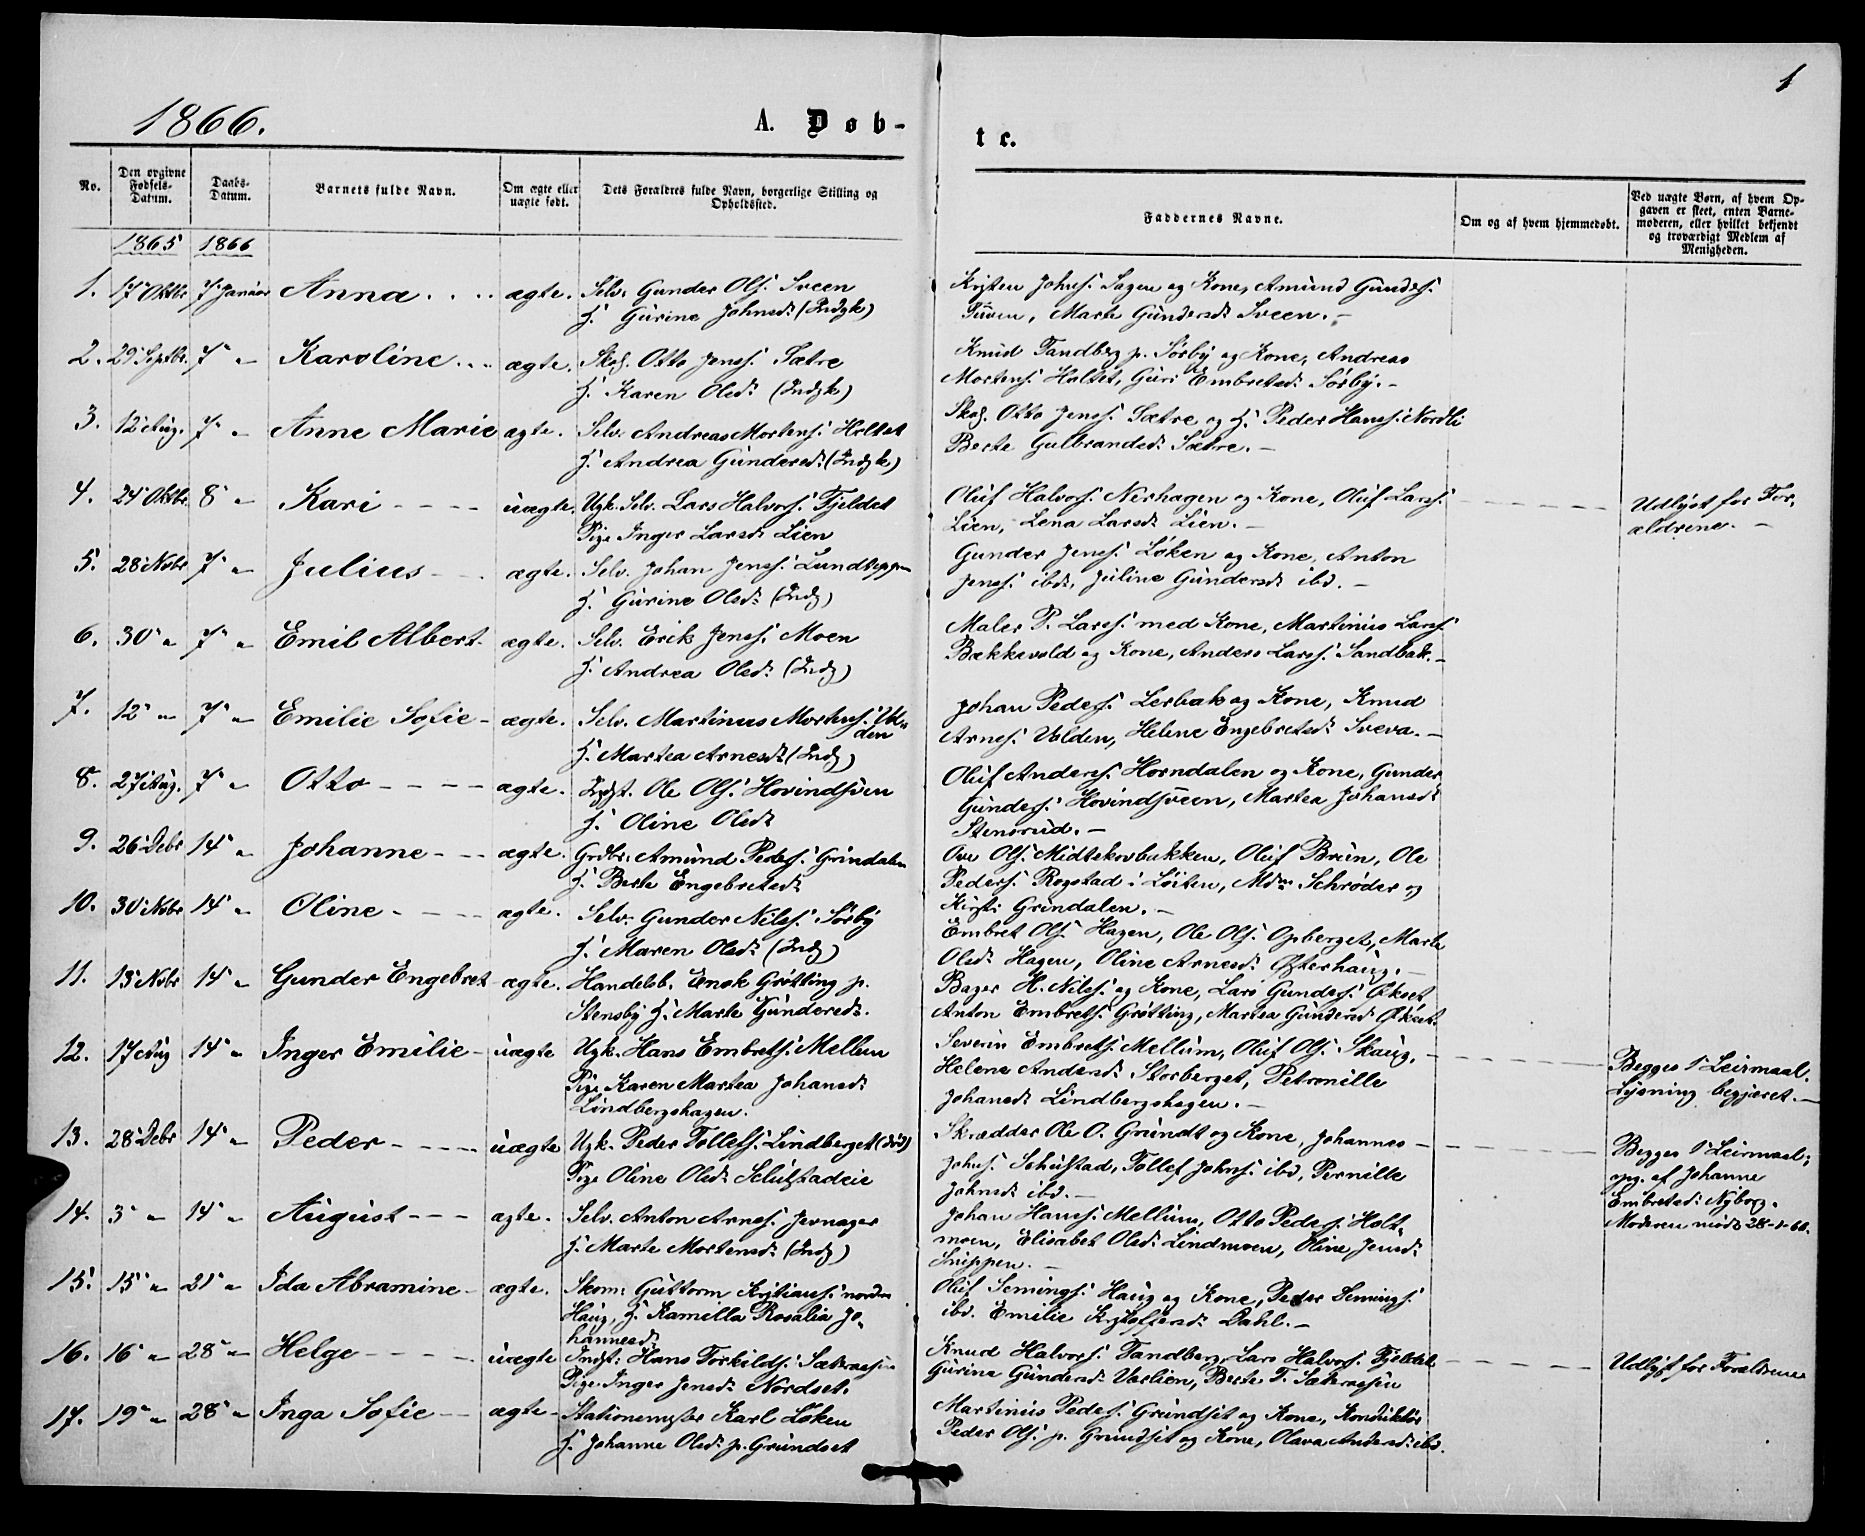 1
1866. A. Døb- te.
No. Den opgivne Fødsels-Datum. Daabs-Datum. Barnets fulde Navn. Om ægte eller uægte født. Dets Forældres fulde Navn, borgerlige Stilling og Opholdssted. Faddernes Navne. Om og af hvem hjemmedøbt. Ved uægte Børn, af hvem Opgaven er skeet, enten Barnemoderen, eller hvilket bekjendt og troværdigt Medlem af Menigheden.
1865 1866
1. 17 Oktbr 7 Januar Anna . . . . ægte. Selv. Gunder Ols. Sveen
H. Gurine Johnsd: (Indgk)
Kristen Johns. Sagen og Kone, Amund Gunders.
Tuven, Marte Gundersd: Sveen. -
2. 29 Septbr. 7 " Karoline . . . ægte. Skog. Otto Jens. Sætre
H. Karen Olsd: (Indgk)
Knud Tandberg p. Sørby og Kone, Andreas
Mortens. Holtet, Guri Embretsd: Sørby. -
3. 12 Aug. 7 " Anne Marie ægte. Selv. Andreas Mortens. Holtet
H. Andrea Gundersd: (Indgk.)
Skog. Otto Jens. Sætre og H. Peder Hans. Nordli
Berte Gulbrandsd: Sætre. -
4. 24 Oktbr. 8 " Kari - - - - uægte. Ugk. Selv. Lars Halvors. Fjeldet
Pige Inger Larsd: Lien
Oluf Halvors. Nerhagen og Kone, Oluf Lars.
Lien, Lena Larsd: Lien. -
Udlyst for For-
ældrene. -
5. 28 Nobr 7 " Julius - - - ægte. Selv. Johan Jens. Lundteppen
H. Gurine Olsd: (Indg)
Gunder Jens. Løken og Kone, Anton
Jens. ibd, Juline Gundersd: ibd. -
6. 30 " 7 " Emil Albert - ægte. Selv. Erik Jens. Moen
H. Andrea Olsd: (Indg)
Maler P. Lars. med Kone, Martinius Lars.
Bækkevold og Kone, Anders Lars. Sandbak. -
7. 12 " 7 " Emilie Sofie - ægte. Selv. Martinus Mortens. Vol-
den
H. Martea Arnesd: (Indg)
Johan Peders. Lerbak og Kone, Knud
Arnes. Volden, Helene Engebretsd: Sveva. -
8. 27 Aug. 7 " Otto - - - - ægte. Indst. Ole Ols. Hovindsven
H. Oline Olsd:
Oluf Anders. Horndalen og Kone, Gunder
Gunders. Hovindsveen, Martea Johansd:
Stensrud. -
9. 26 Debr 14 " Johanne - - - ægte. Grdbr. Amund Peders. Grindalen
H. Berte Engebretsd:
Ove Ols. Midtskovbakken, Oluf Brun, Ole
Peders. Rogstad i Løiten, Mdm Schrøder og
Kirsti Grindalen. -
10. 30 Nobr 14 " Oline - - - - ægte. Selv. Gunder Nils. Sørby
H. Maren Olsd: (Indg)
Embret Ols. Hagen, Ole Ols. Opberget, Marte
Olsd: Hagen, Oline Arnesd: Østerhaug. -
11. 13 Nobr 14 " Gunder Engebret - ægte. Handelsb. Enok Grøtting p.
Stensby H. Marte Gundersd:
Bager H. Nils. og Kone, Lars Gunders. Økset
Anton Embrets. Grøtting, Martea Gundersd: Økset.
12. 17 Aug 14 " Inger Emilie - uægte Ugk. Hans Embrets. Mellum
Pige Karen Martea Johansd:
Lindbergshagen.
Severin Embrets. Mellum, Oluf Ols. Skaug, -
Helene Andersd: Storberget, Petronille
Johansd: Lindbergshagen. -
Begges 1 Leiermaal.
Lysning begjæret. -
13. 28 Debr 14 " Peder - - - - uægte Ugk. Peder Tollefs. Lindberget (død)
Pige Oline Olsd:
Skrædder Ole O. Grundt og Kone, Johannes
Johns. Schulstad, Tollef Johns. ibd, Pernille
Johnsd: ibd. -
Begges 1 Leiermaal;
opg. af Johanne
Embretsd: Nyborg.
Moderen mødt 28-1-66.
14. 3 " 14 " August - - - ægte. Selv. Anton Arnes. Jernager
H. Marte Mortensd: (Indg)
Johan Hans. Mellum, Otto Peders. Holt-
moen, Elisabet Olsd: Lindmoen, Oline Jensd:
Snippen. -
15. 15 " 21 " Ida Abramine - ægte. Skom: Guttorm Kristians. nordre
Haug, H. Kamilla Rosalia Jo-
hannesd:
Oluf Semings. Haug og Kone, Peder Semings.
ibd. Emilie Kristoffersd: Dahl. -
16. 16 " 28 " Helge - - - - uægte Indst: Hans Torkilds.
Pige Inger Jensd: Nordset.
Knud Halvors. Tandberg, Lars Halvors. Fjeldet
Gurine Gundersd: Vaslien, Berte T.
Udlyst for Forældrene
17. 19 " 28 " Inga Sofie - - ægte - Stationsmester Karl Løken
H. Johanne Olsd: p. Grundset
Martinius Peders. Grundset og Kone, Konduktør
Peder Ols. p. Grundset og Kone, Olava Andersd: ibd.